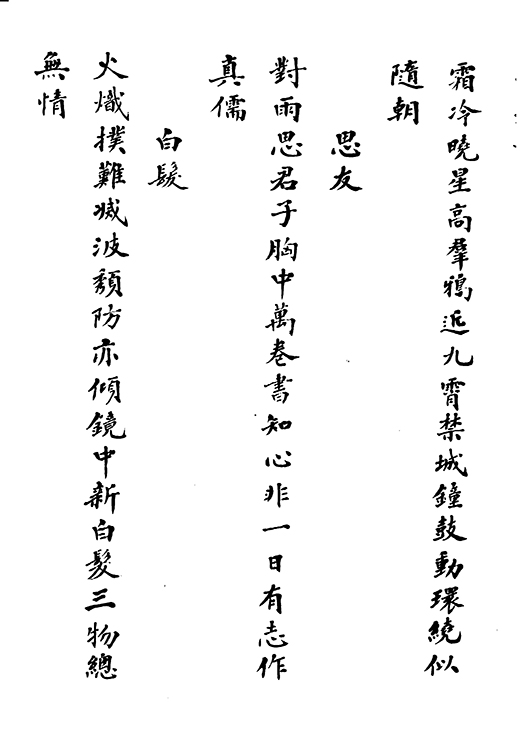 霜冷曉星高羣鴉近九霄禁城鐘鼓動環繞似
隨朝
思友
對雨思君子胸中萬卷書知心非一日有志作
真儒
白髮
火熾撲難滅波頹防亦傾鏡中新白髮三物總
無情